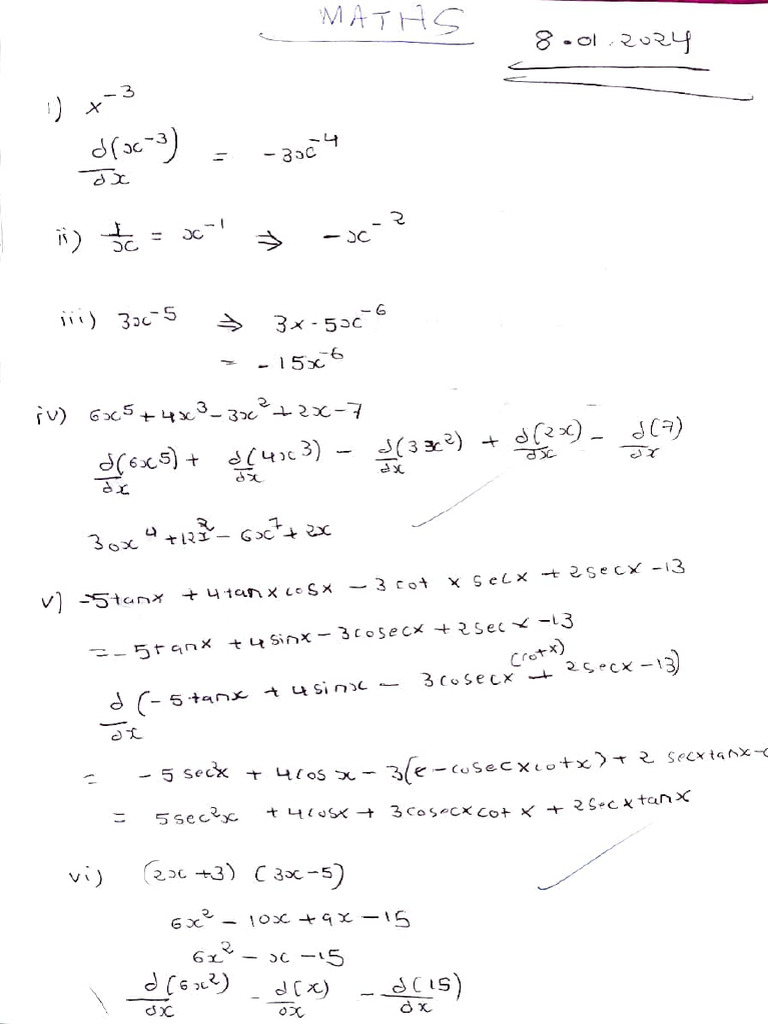 MATHS
8.01.2024
i) x^-3
d(x^-3)/dx = -3x^-4
ii) 1/x = x^-1 ⇒ -x^-2
iii) 3x^-5 ⇒ 3x-5x^-6
= -15x^-6
iv) 6x^5 + 4x^3 - 3x^2 + 2x - 7
d(6x^5)/dx + d(4x^3)/dx - d(3x^2)/dx + d(2x)/dx - d(7)/dx
30x^4 + 12x^2 - 6x^7 + 2x
v) -5tanx + 4tanxcosx - 3cot x secx + 2secx - 13
= -5tanx + 4sinx - 3cosecx + 2secx - 13
(cotx)
d/dx (-5tanx + 4sinx - 3cosecx + 2secx - 13)
= -5sec²x + 4cosx - 3(-cosecxcotx) + 2 secxtanx -
= 5sec²x + 4cosx + 3cosecxcotx + 2secxtanx
vi) (2x+3) (3x-5)
6x² - 10x + 9x - 15
6x² - x - 15
d(6x²)/dx - d(x)/dx - d(15)/dx